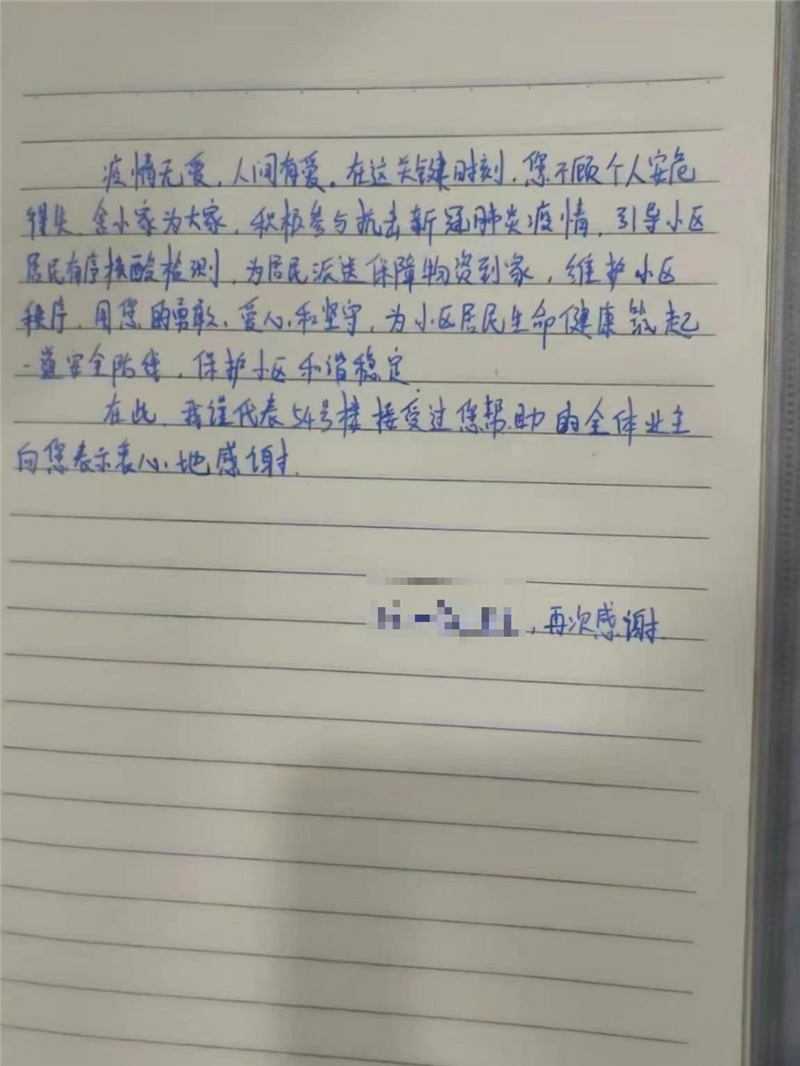 疫情无爱，人间有爱。在这关键时刻，您不顾个人安危
得失，舍小家为大家，积极参与抗击新冠肺炎疫情，引导小区
居民有序核酸检测，为居民派送保障物资到家，维护小区
秩序，用您的勇敢、爱心和坚守，为小区居民生命健康筑起
一道安全防线，保护小区和谐稳定。
在此，我谨代表54号楼接受过您帮助的全体业主
向您表示衷心地感谢.
，再次感谢.